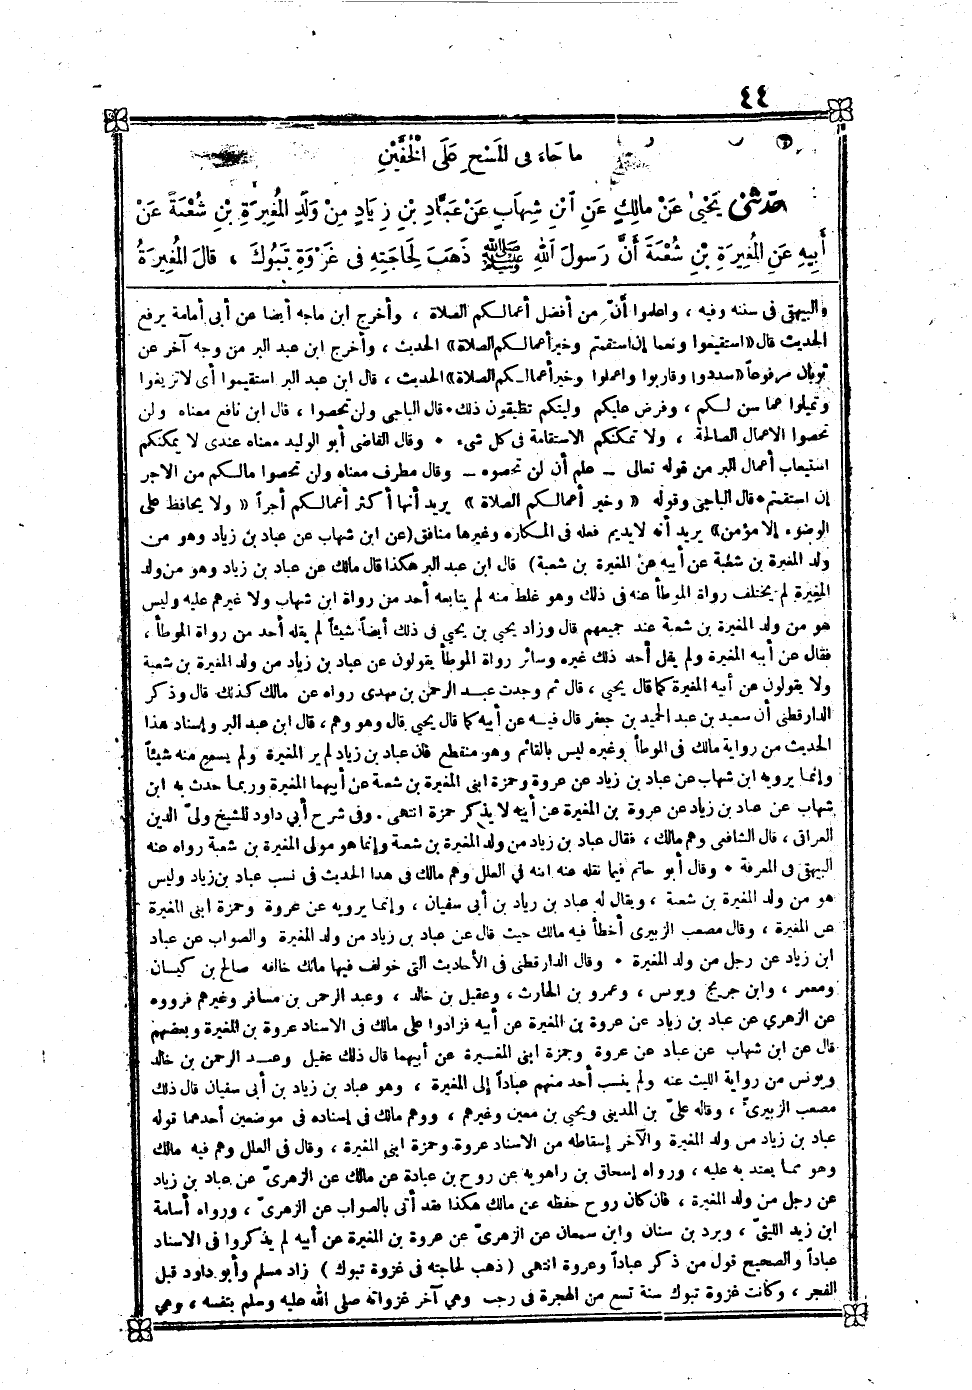 ٤٤
ما جاء فى المسح على الخفين
حدثنى يَحْيَىٰ عَنْ مالِكٍ عَنِ ابْنِ شِهابٍ عَنْ عَبَّادِ بْنِ زِيَادٍ مِنْ وَلَدِ المُغِيرَةِ بْنِ شُعْبَةَ عَنْ
أَبِيهِ عَنِ المُغِيرَةِ بْنِ شُعْبَةَ أَنَّ رَسولَ اللهِ ﷺ ذَهَبَ لِحَاجَتِهِ فى غَزْوَةِ تَبُوكَ ، قالَ المُغِيرَةُ
والبيهقى فى سننه وفيه ، واعلموا أنّ من أفضل أعمالكم الصلاة ، وأخرج ابن ماجه أيضا عن أبى أمامة يرفع
الحديث قال «استقيموا ونعما إن استقمتم وخير أعمالكم الصلاة» الحديث ، وأخرج ابن عبد البر من وجه آخر عن
ثوبان مرفوعاً «سددوا وقاربوا واعملوا وخير أعمالكم الصلاة» الحديث ، قال ابن عبد البر استقيموا أى لا تزيغوا
وتميلوا عما سن لكم ، وفرض عليكم وليتكم تطيقون ذلك • قال الباجى ولن تحصوا ، قال ابن نافع معناه ولن
تحصوا الاعمال الصالحة ، ولا تمكنكم الاستقامة فى كل شىء • وقال القاضى أبو الوليد معناه عندى لا يمكنكم
استيعاب أعمال البر من قوله تعالى ــ علم أن لن تحصوه ــ وقال مطرف معناه ولن تحصوا مالكم من الاجر
إن استقمتم • قال الباجى وقوله « وخير أعمالكم الصلاة » يريد أنها أكثر أعمالكم أجراً « ولا يحافظ على
الوضوء إلا مؤمن» يريد أنه لا يديم فعله فى المكاره وغيرها منافق (عن ابن شهاب عن عباد بن زياد وهو من
ولد المغيرة بن شعبة عن أبيه عن المغيرة بن شعبة) قال ابن عبد البر هكذا قال مالك عن عباد بن زياد وهو من ولد
المغيرة لم يختلف رواة الموطأ عنه فى ذلك وهو غلط منه لم يتابعه أحد من رواة ابن شهاب ولا غيرهم عليه وليس
هو من ولد المغيرة بن شعبة عند جميعهم قال وزاد يحيى بن يحيى فى ذلك أيضاً شيئاً لم يقله أحد من رواة الموطأ ،
فقال عن أبيه المغيرة ولم يقل أحد ذلك غيره وسائر رواة الموطأ يقولون عن عباد بن زياد من ولد المغيرة بن شعبة
ولا يقولون عن أبيه المغيرة كما قال يحيى ، قال ثم وجدت عبد الرحمن بن مهدى رواه عن مالك كذلك قال وذكر
الدارقطنى أن سعيد بن عبد الحميد بن جعفر قال فيه عن أبيه كما قال يحيى قال وهو وهم ، قال ابن عبد البر وإسناد هذا
الحديث من رواية مالك فى الموطأ وغيره ليس بالقائم وهو منقطع فان عباد بن زياد لم ير المغيرة ولم يسمع منه شيئاً
وإنما يرويه ابن شهاب عن عباد بن زياد عن عروة وحمزة ابنى المغيرة بن شعبة عن أبيهما المغيرة وربما حدث به ابن
شهاب عن عباد بن زياد عن عروة بن المغيرة عن أبيه لا يذكر حمزة انتهى . وفى شرح أبي داود للشيخ ولىّ الدين
العراقى ، قال الشافعى وهم مالك ، فقال عباد بن زياد من ولد المغيرة بن شعبة وإنما هو مولى المغيرة بن شعبة رواه عنه
البيهقى فى المعرفة • وقال أبو حاتم فيما نقله عنه ابنه فى العلل وهم مالك فى هذا الحديث فى نسب عباد بن زياد وليس
هو من ولد المغيرة بن شعبة ، ويقال له عباد بن زياد بن أبى سفيان ، وإنما يرويه عن عروة وحمزة ابنى المغيرة
عن المغيرة ، وقال مصعب الزبيرى أخطأ فيه مالك حيث قال عن عباد بن زياد من ولد المغيرة والصواب عن عباد
ابن زياد عن رجل من ولد المغيرة • وقال الدارقطنى فى الأحاديث التى خولف فيها مالك خالفه صالح بن كيسان
ومعمر ، وابن جريج ويونس ، وعمرو بن الحارث ، وعقيل بن خالد ، وعبد الرحمن بن مسافر وغيرهم فرووه
عن الزهري عن عباد بن زياد عن عروة بن المغيرة عن أبيه فزادوا على مالك فى الاسناد عروة بن المغيرة وبعضهم
قال عن ابن شهاب عن عباد عن عروة وحمزة ابنى المغيرة عن أبيهما قال ذلك عقيل وعبد الرحمن بن خالد
ويونس من رواية الليث عنه ولم ينسب أحد منهم عباداً إلى المغيرة ، وهو عباد بن زياد بن أبى سفيان قال ذلك
مصعب الزبيرىّ ، وقاله علىّ بن المدينى ويحيى بن معين وغيرهم ، ووهم مالك فى إسناده فى موضعين أحدهما قوله
عباد بن زياد من ولد المغيرة والآخر إسقاطه من الاسناد عروة وحمزة ابنى المغيرة ، وقال فى العلل وهم فيه مالك
وهو مما يعتد به عليه ، ورواه إسحاق بن راهويه عن روح بن عبادة عن مالك عن الزهرىّ عن عباد بن زياد
عن رجل من ولد المغيرة ، فان كان روح حفظه عن مالك هكذا فقد أتى بالصواب عن الزهرىّ ، ورواه أسامة
ابن زيد الليثىّ ، وبرد بن سنان وابن سمعان عن الزهرىّ عن عروة بن المغيرة عن أبيه لم يذكروا فى الاسناد
عباداً والصحيح قول من ذكر عباداً وعروة انتهى ( ذهب لحاجته فى غزوة تبوك ) زاد مسلم وأبو داود قبل
الفجر ، وكانت غزوة تبوك سنة تسع من الهجرة فى رجب وهي آخر غزواته صلى الله عليه وسلم بنفسه ، وهي